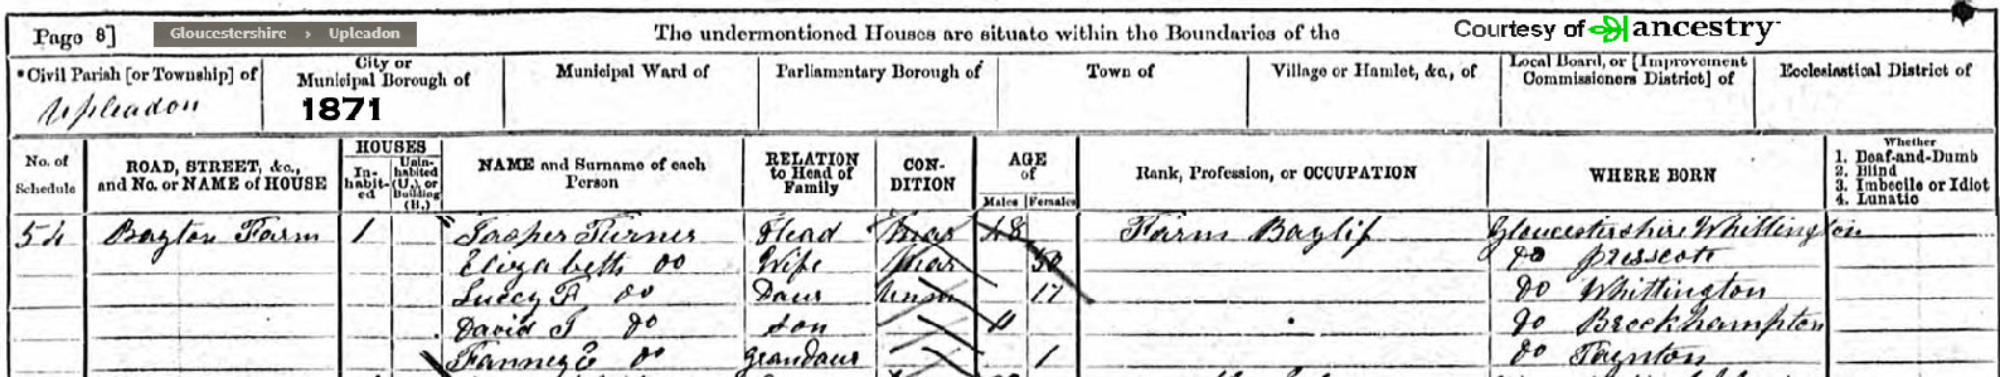 Page 8] Gloucestershire › Upleadon The undermentioned Houses are situate within the Boundaries of the Courtesy of ancestry
*Civil Parish [or Township] of
Upleadon
City or
Municipal Borough of
1871
Municipal Ward of
Parliamentary Borough of
Town of
Village or Hamlet, &c., of
Local Board, or [Improvement
Commissioners District] of
Ecclesiastical District of
No. of
Schedule
ROAD, STREET, &c.,
and No. or NAME of HOUSE
HOUSES
In-
habit-
ed
Unin-
habited
(U.), or
Building
(B.)
NAME and Surname of each
Person
RELATION
to Head of
Family
CON-
DITION
AGE
of
Males Females
Rank, Profession, or OCCUPATION
WHERE BORN
Whether
1. Deaf-and-Dumb
2. Blind
3. Imbecile or Idiot
4. Lunatic
54 Bayton Farm 1 Jasper Turner Head Mar 48 Farm Baylif Gloucestershire Whittington
Elizabeth do Wife Mar 50 do Prescott
Luccy F do Daur Unm 17 Do Whittington
David T do Son 4 do Brockhampton
Fanney E do Grandaur 1 do Taynton